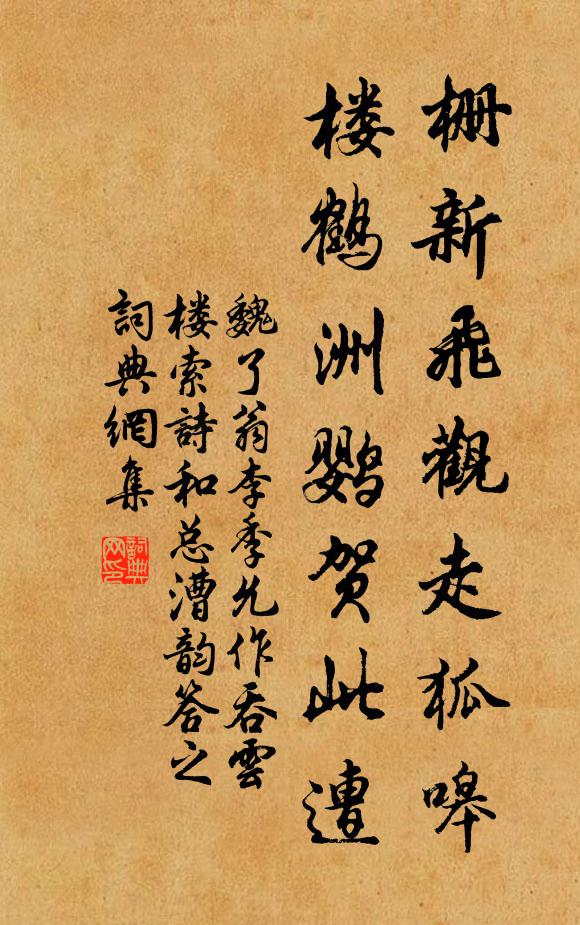 栅新飛觀走狐嗥
楼鶴洲鹦贺此遭
魏了翁李季允作吞雲
楼索詩和总漕韵答之
詞典網集
詞典
网印